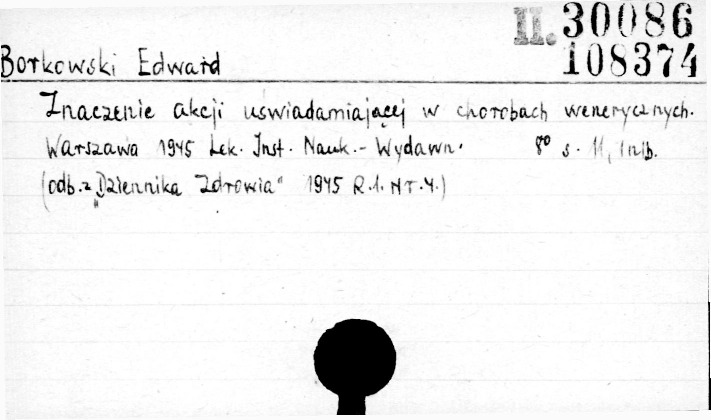 II. 30086
108374
Borkowski Edward
Znaczenie akcji uświadamiającej w chorobach wenerycznych.
Warszawa 1945 Lek. Inst. Nauk.- Wydawn. 8° s. 11, 1 nlb.
(odb. z „Dziennika Zdrowia" 1945 R.1. Nr. 4.)